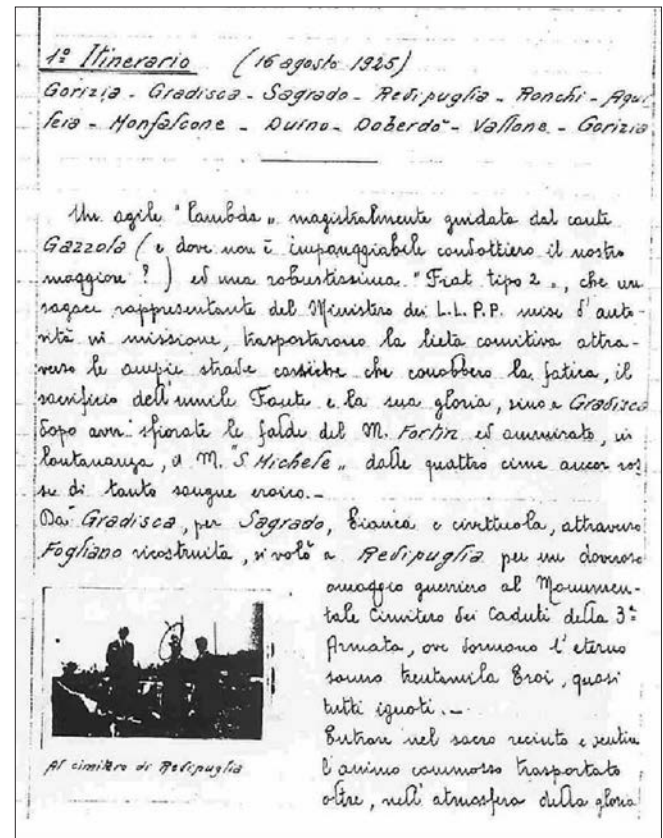 1º Itinerario (16 agosto 1925)
Gorizia - Gradisca - Sagrado - Redipuglia - Ronchi - Aqui
leia - Monfalcone - Duino - Doberdò - Vallone - Gorizia
Un agile "Lambda" magistralmente guidata dal caute
Gazzola (e dove non è impareggiabile condottiero il nostro
maggiore?) ed una robustissima "Fiat tipo 2", che un
sagace rappresentante del Ministero dei L.L.P.P. mise d'auto-
rità in missione, trasportarono la lieta comitiva attra-
verso le ampie strade carsiche che conobbero la fatica, il
sacrificio dell'umile Fante e la sua gloria, sino a Gradisca
dopo aver sfiorate le falde del M. Fortin ed ammirato, in
lontananza, il M. "S. Michele" dalle quattro cime ancor ros
se di tanto sangue eroico.-
Da Gradisca, per Sagrado, bianca e civettuola, attraverso
Fogliano ricostruita, si volò a Redipuglia per un doveroso
omaggio guerriero al Monumen-
tale Cimitero dei Caduti della 3ª
Armata, ove dormono l'eterno
sonno trentamila Eroi, quasi
tutti ignoti.-
Entrare nel sacro recinto e sentire
l'animo commosso trasportato
oltre, nell'atmosfera della gloria
Al cimitero di Redipuglia